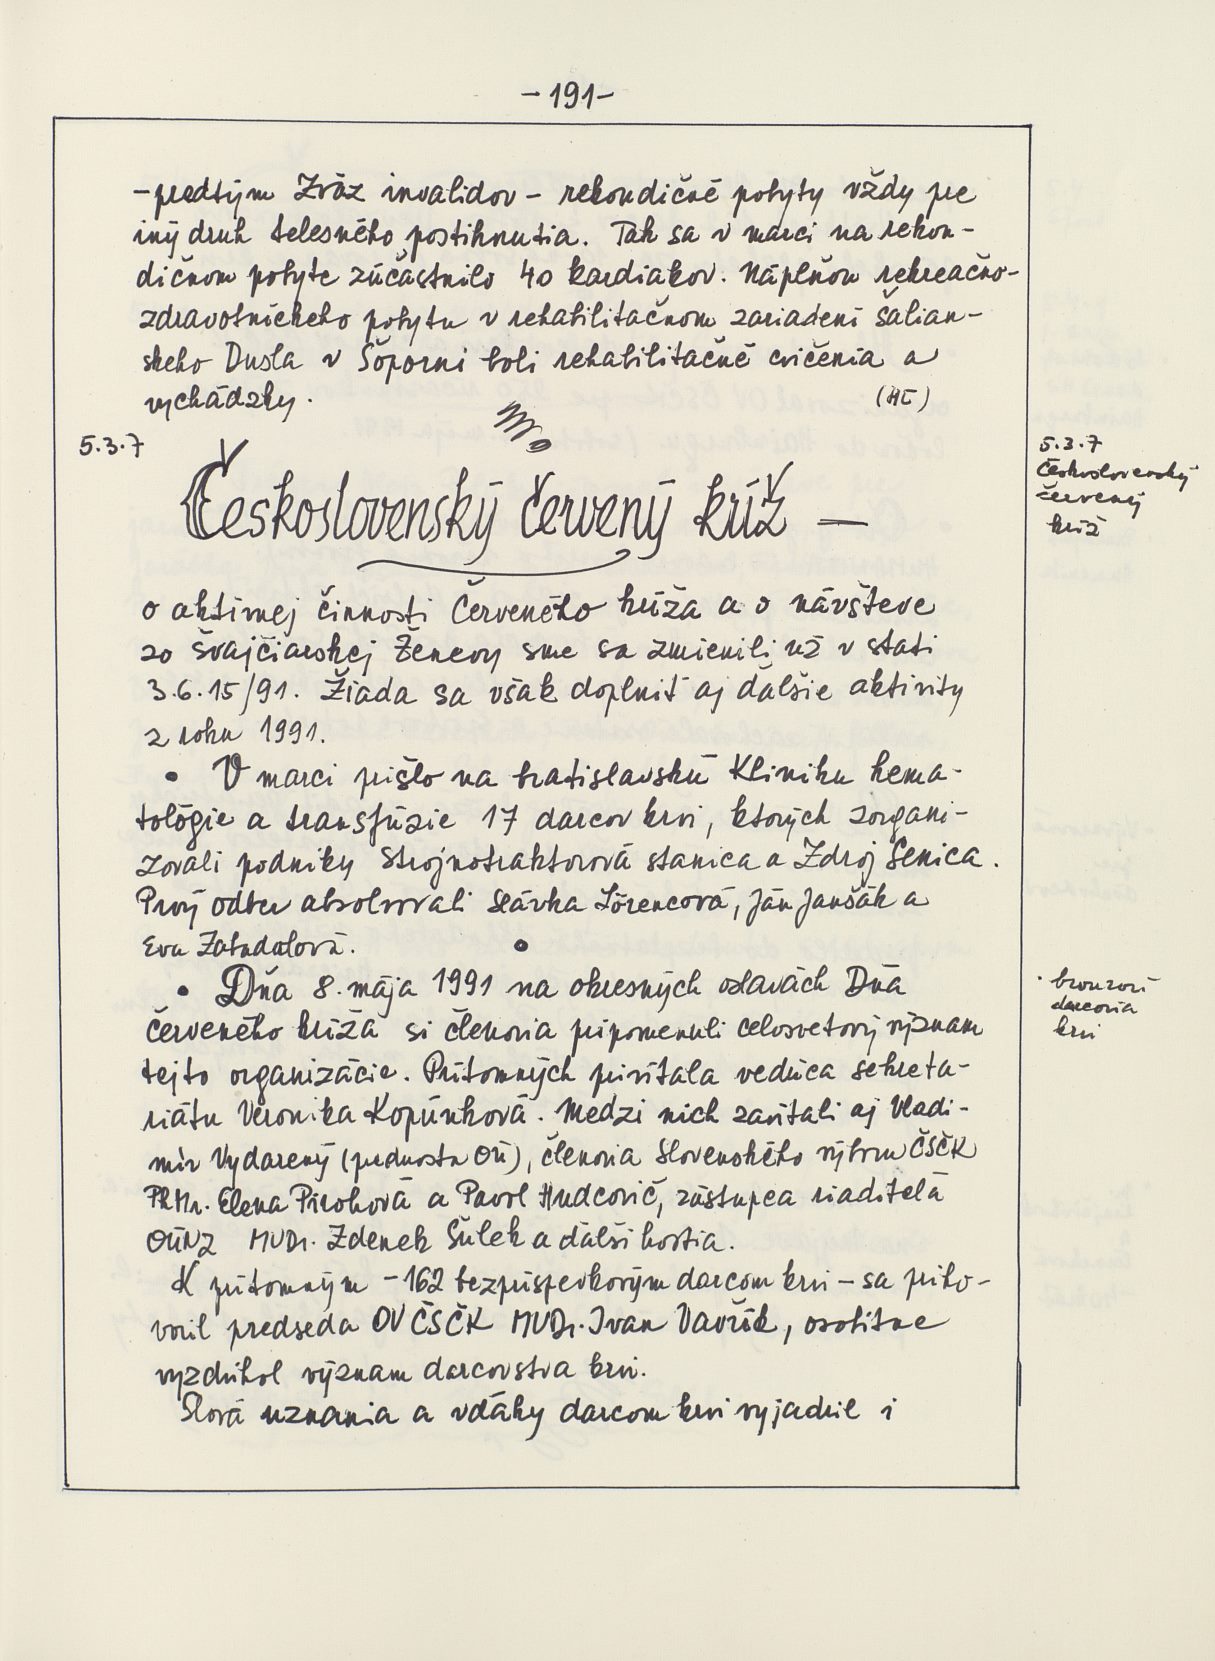 - 191 -
- predtým Zväz invalidov - rekondičné pobyty vždy pre
iný druh telesného postihnutia. Tak sa v marci na rekon-
dičnom pobyte zúčastnilo 40 kardiakov. Náplňou rekreačno-
zdravotníckeho pobytu v rehabilitačnom zariadení Šalian-
skeho Dusla v Šoporni boli rehabilitačné cvičenia a
vychádzky.
(HĽ)
5.3.7
Československý červený kríž —
5.3.7
Československý
červený
kríž
o aktívnej činnosti Červeného kríža a o návšteve
zo švajčiarskej Ženevy sme sa zmienili už v stati
3.6.15/91. Žiada sa však doplniť aj ďalšie aktivity
z roku 1991.
• V marci prišlo na bratislavskú Kliniku hema-
tológie a transfúzie 17 darcov krvi, ktorých zorgani-
zovali podniky Strojnotraktorová stanica a Zdroj Senica.
Prvý odber absolvovali Slávka Lörencová, Ján Janšák a
Eva Zabadalová.
• Dňa 8. mája 1991 na okresných oslavách Dňa
červeného kríža si členovia pripomenuli celosvetový význam
tejto organizácie. Prítomných privítala vedúca sekreta-
riátu Veronika Kopúnková. Medzi nich zavítali aj Vladi-
mír Vydarený (prednosta OÚ), členovia Slovenského výboru ČSČK
PhMr. Elena Pirohová a Pavol Hudcovič, zástupca riaditeľa
OÚNZ MUDr. Zdenek Šulek a ďalší hostia.
K prítomným - 162 bezpríspevkovým darcom krvi - sa priho-
voril predseda OV ČSČK MUDr. Ivan Vavřík, osobitne
vyzdvihol význam darcovstva krvi.
Slová uznania a vďaky darcom krvi vyjadril i
• bronzoví
darcovia
krvi